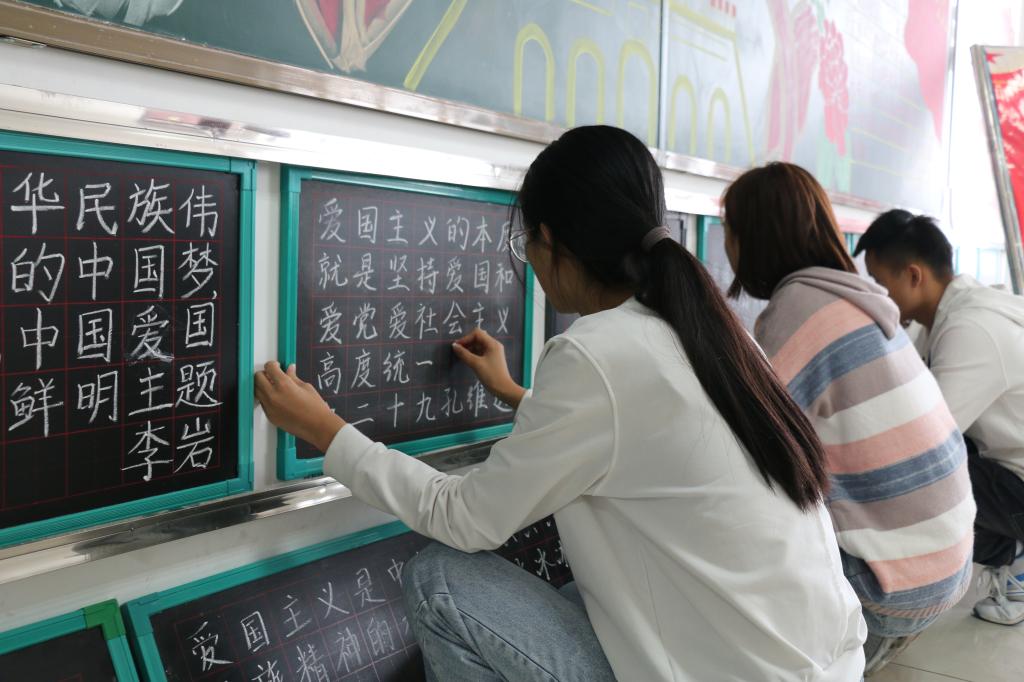 华民族伟
的中国梦,
中国爱国
鲜明主题
李岩
爱国主义的本
就是坚持爱国和
爱党爱社会主义
高度统一
二十九孔维
爱国主义是中
族精神的